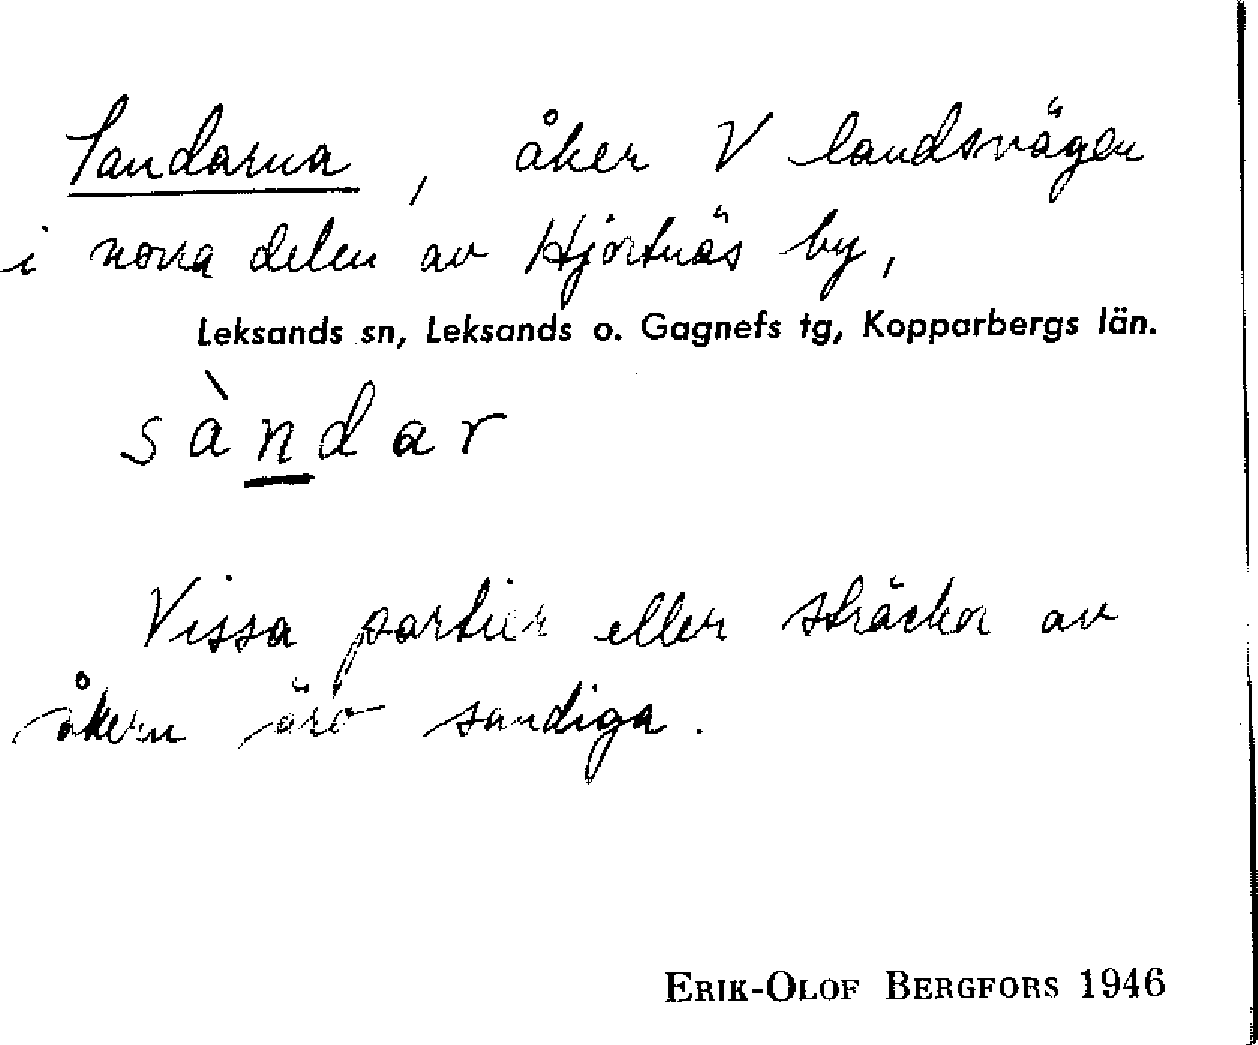 Sandarna, åker V landsvägen
i norra delen av Hjortnäs by,
Leksands sn, Leksands o. Gagnefs tg, Kopparbergs län.
sàndar
Vissa partier eller sträckor av
åkern äro sandiga.
ERIK-OLOF BERGFORS 1946